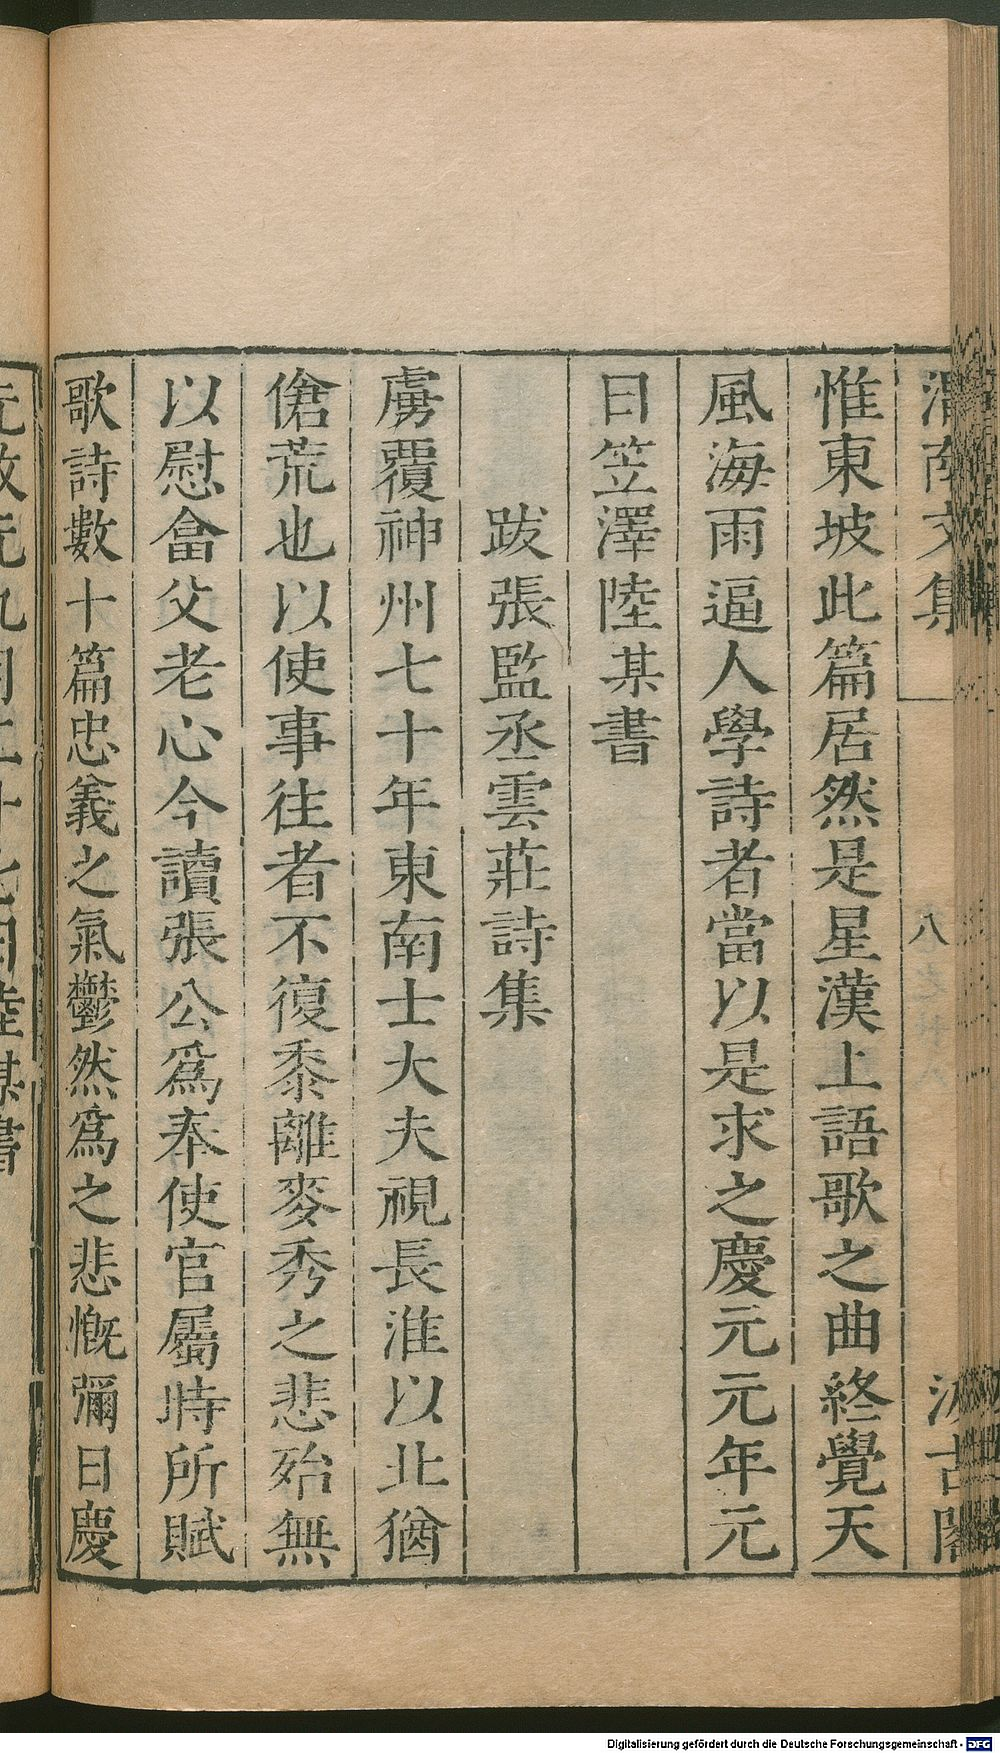 渭南文集
八
汲古閣
惟東坡此篇居然是星漢上語歌之曲終覺天
風海雨逼人學詩者當以是求之慶元元年元
日笠澤陸某書
跋張監丞雲莊詩集
虜覆神州七十年東南士大夫視長淮以北猶
傖荒也以使事往者不復黍離麥秀之悲殆無
以慰畣父老心今讀張公爲奉使官屬時所賦
歌詩數十篇忠義之氣鬱然爲之悲慨彌日慶
陸某書
Digitalisierung gefördert durch die Deutsche Forschungsgemeinschaft - DFG